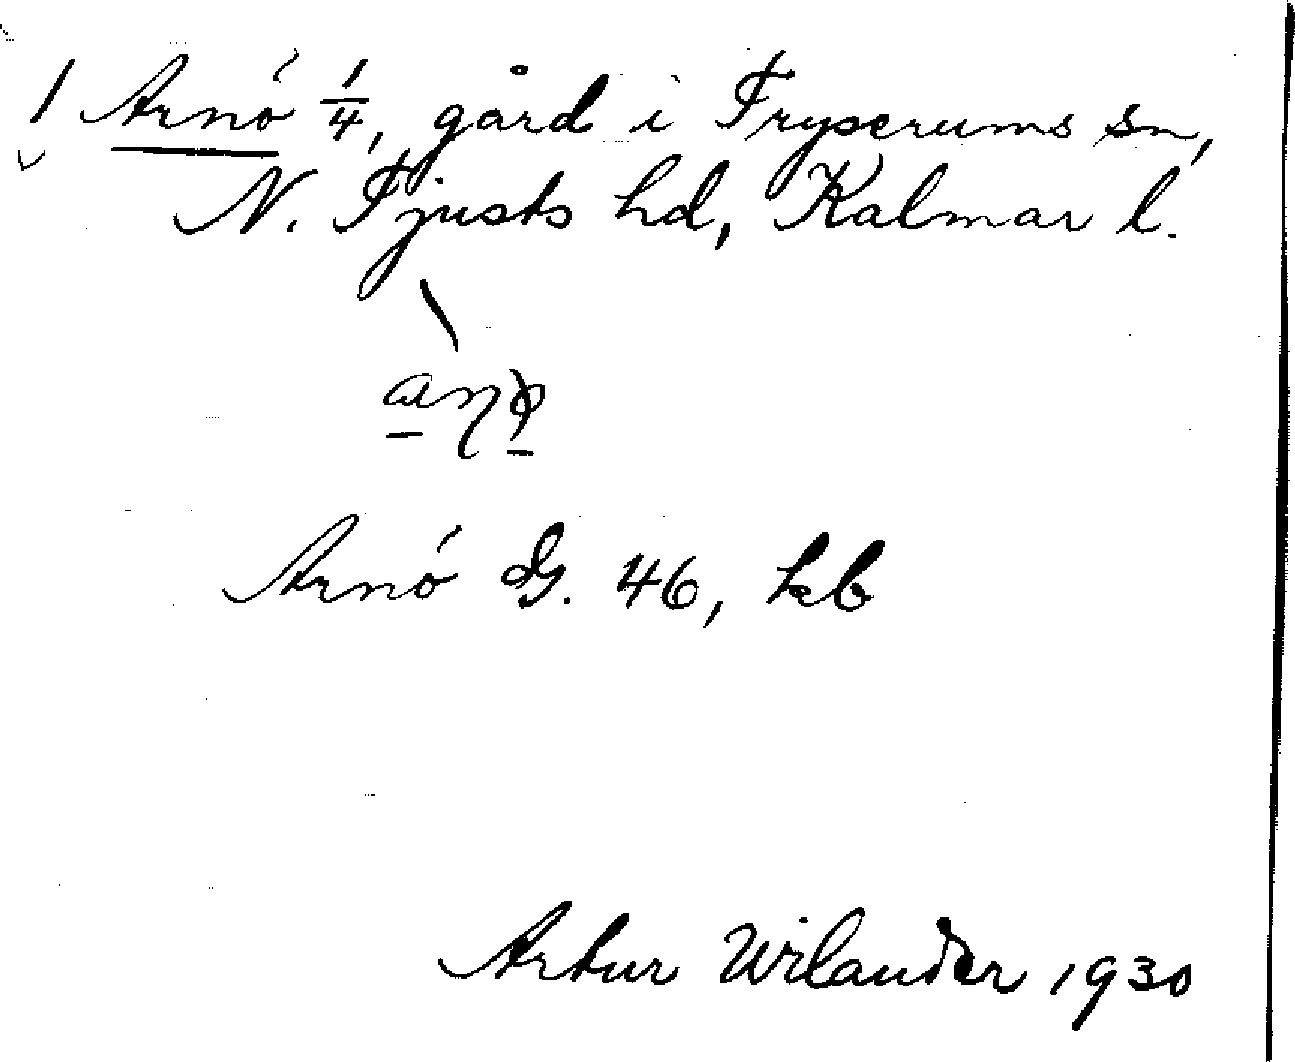 Arnö 1/4, gård i Tryserums sn,
N. Tjusts hd, Kalmar l.
Arnö G. 46, kb
Artur Wilander 1930